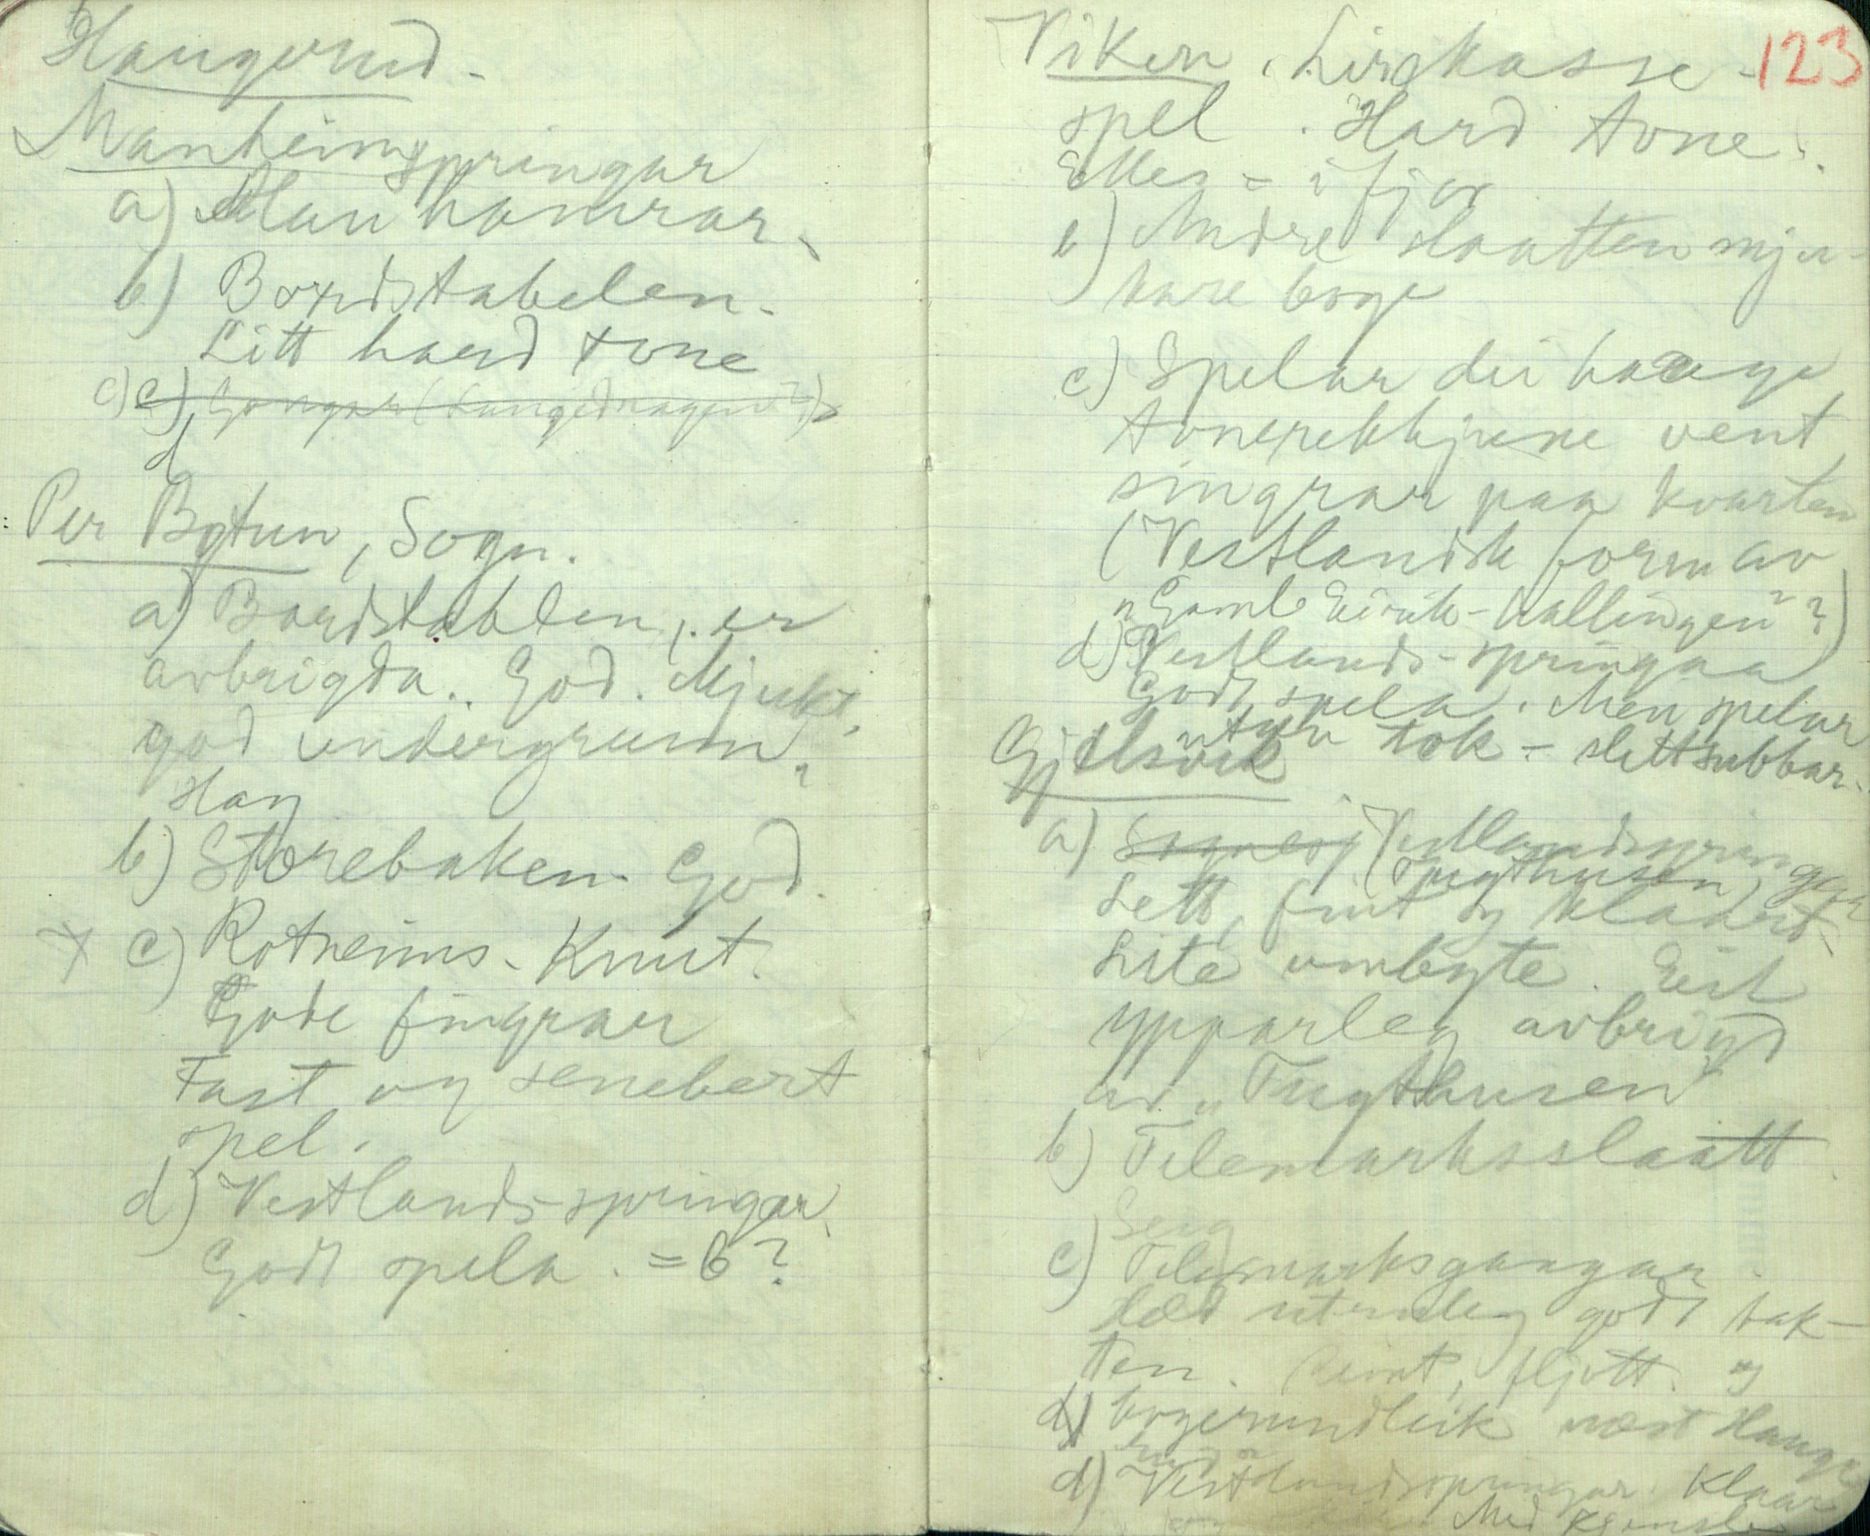 Haugerud.
Manheimspringar
a) Han hamrar.
b) Bordstabelen.
Litt hard tone
c) c) Gangar
d
Per Bøtun, Sogn.
a) Bordstablen, er
avbrigda. God. Mjukt,
god undergrunn.
Hay
b) Storebaken. God.
x c) Rotneims-Knut.
Gode fingrar
Fast og senebert
spel.
d) Vestlands-springar.
Godt spela. = b?
123
Viken. Lirekasse-
spel. Hard tone.
Elles = i fjor
b) Andre slaatten mju-
kare boge
c) Spelar dei haage
tonerekkjene vent,
singrar paa kvarten
(Vestlandsk form av
"Gamle Eirik-hallingen"?)
d) Vestlands-springar
Godt spela. Men spelar
utan tok - slett subbar.
Gjelsvik
a) Vestlandsspringar
(Tugthusen)
Lett, fint og klaart.
Lite ombøte. Eit
ypparleg avbrigd
av "Tugthusen"
b) Telemarksslaatt.
Serg
c) Telemarksgangar.
Hæd utruleg godt tak-
ten. Reint, fljott. og
d) bogerundleik næst Hauge
rud
d) Vestlandsspringar. Klaar
Med kjensle